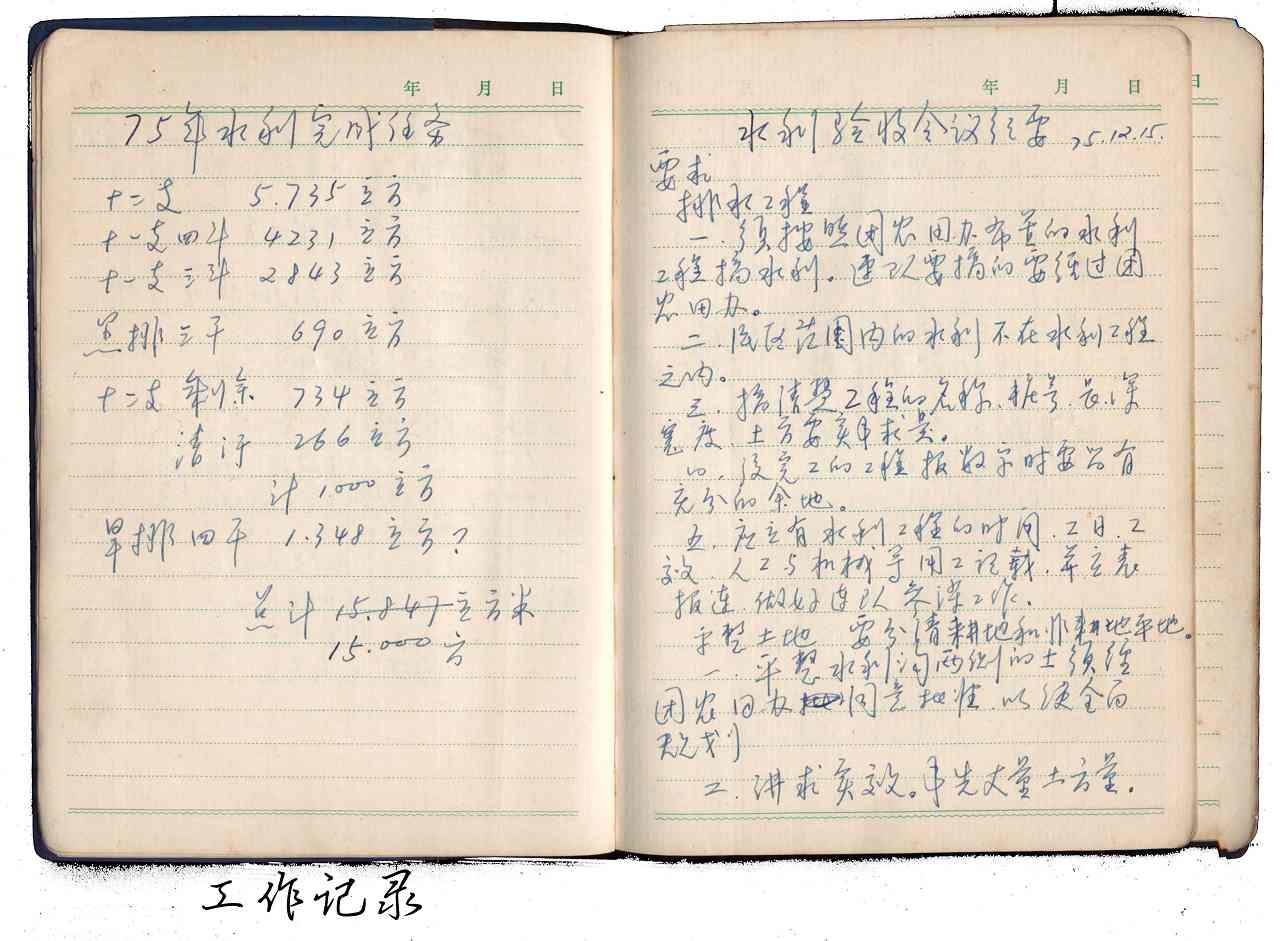 年 月 日
75年水利完成任务
十二支 5.735立方
十一支四斗 4231立方
十一支三斗 2843立方
总排三干 690立方
十二支剩余 734立方
清污 266立方
计1.000立方
旱排四干 1.348立方?
总计 15.847立方米
15.000方
年 月 日
水利验收会议纪要 75.12.15.
要求
排水工程
一.须按照团农田办布置的水利
工程搞水利。连队要搞的要经过团
农田办。
二.民区范围内的水利不在水利工程
之内。
三.搞清楚工程的名称.桩号.长.深
宽度.土方要实事求是。
四.没完工的工程报数字时要留有
充分的余地。
五.应立有水利工程的时间.工日.工
效.人工与机械等用工记载.并立表
报连.做好连队参谋工作.
平整土地 要分清耕地和非耕地平地。
一.平整水利沟两侧的土须经
团农田办同意批准.以便全面
规划
二.讲求实效。事先丈量土方量.
日
工作记录